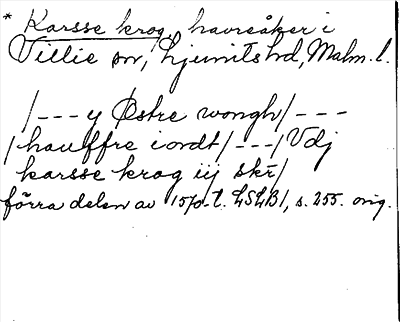 * Karsse krog, havreåker i
Villie sn, Ljunits hd, Malm. l.
/--- y Østre wongh/---
/hauffre iordt/---/Vdj
karsse krog iij skr̄/
förra delen av 1570-t. LSLB1, s. 255. orig.